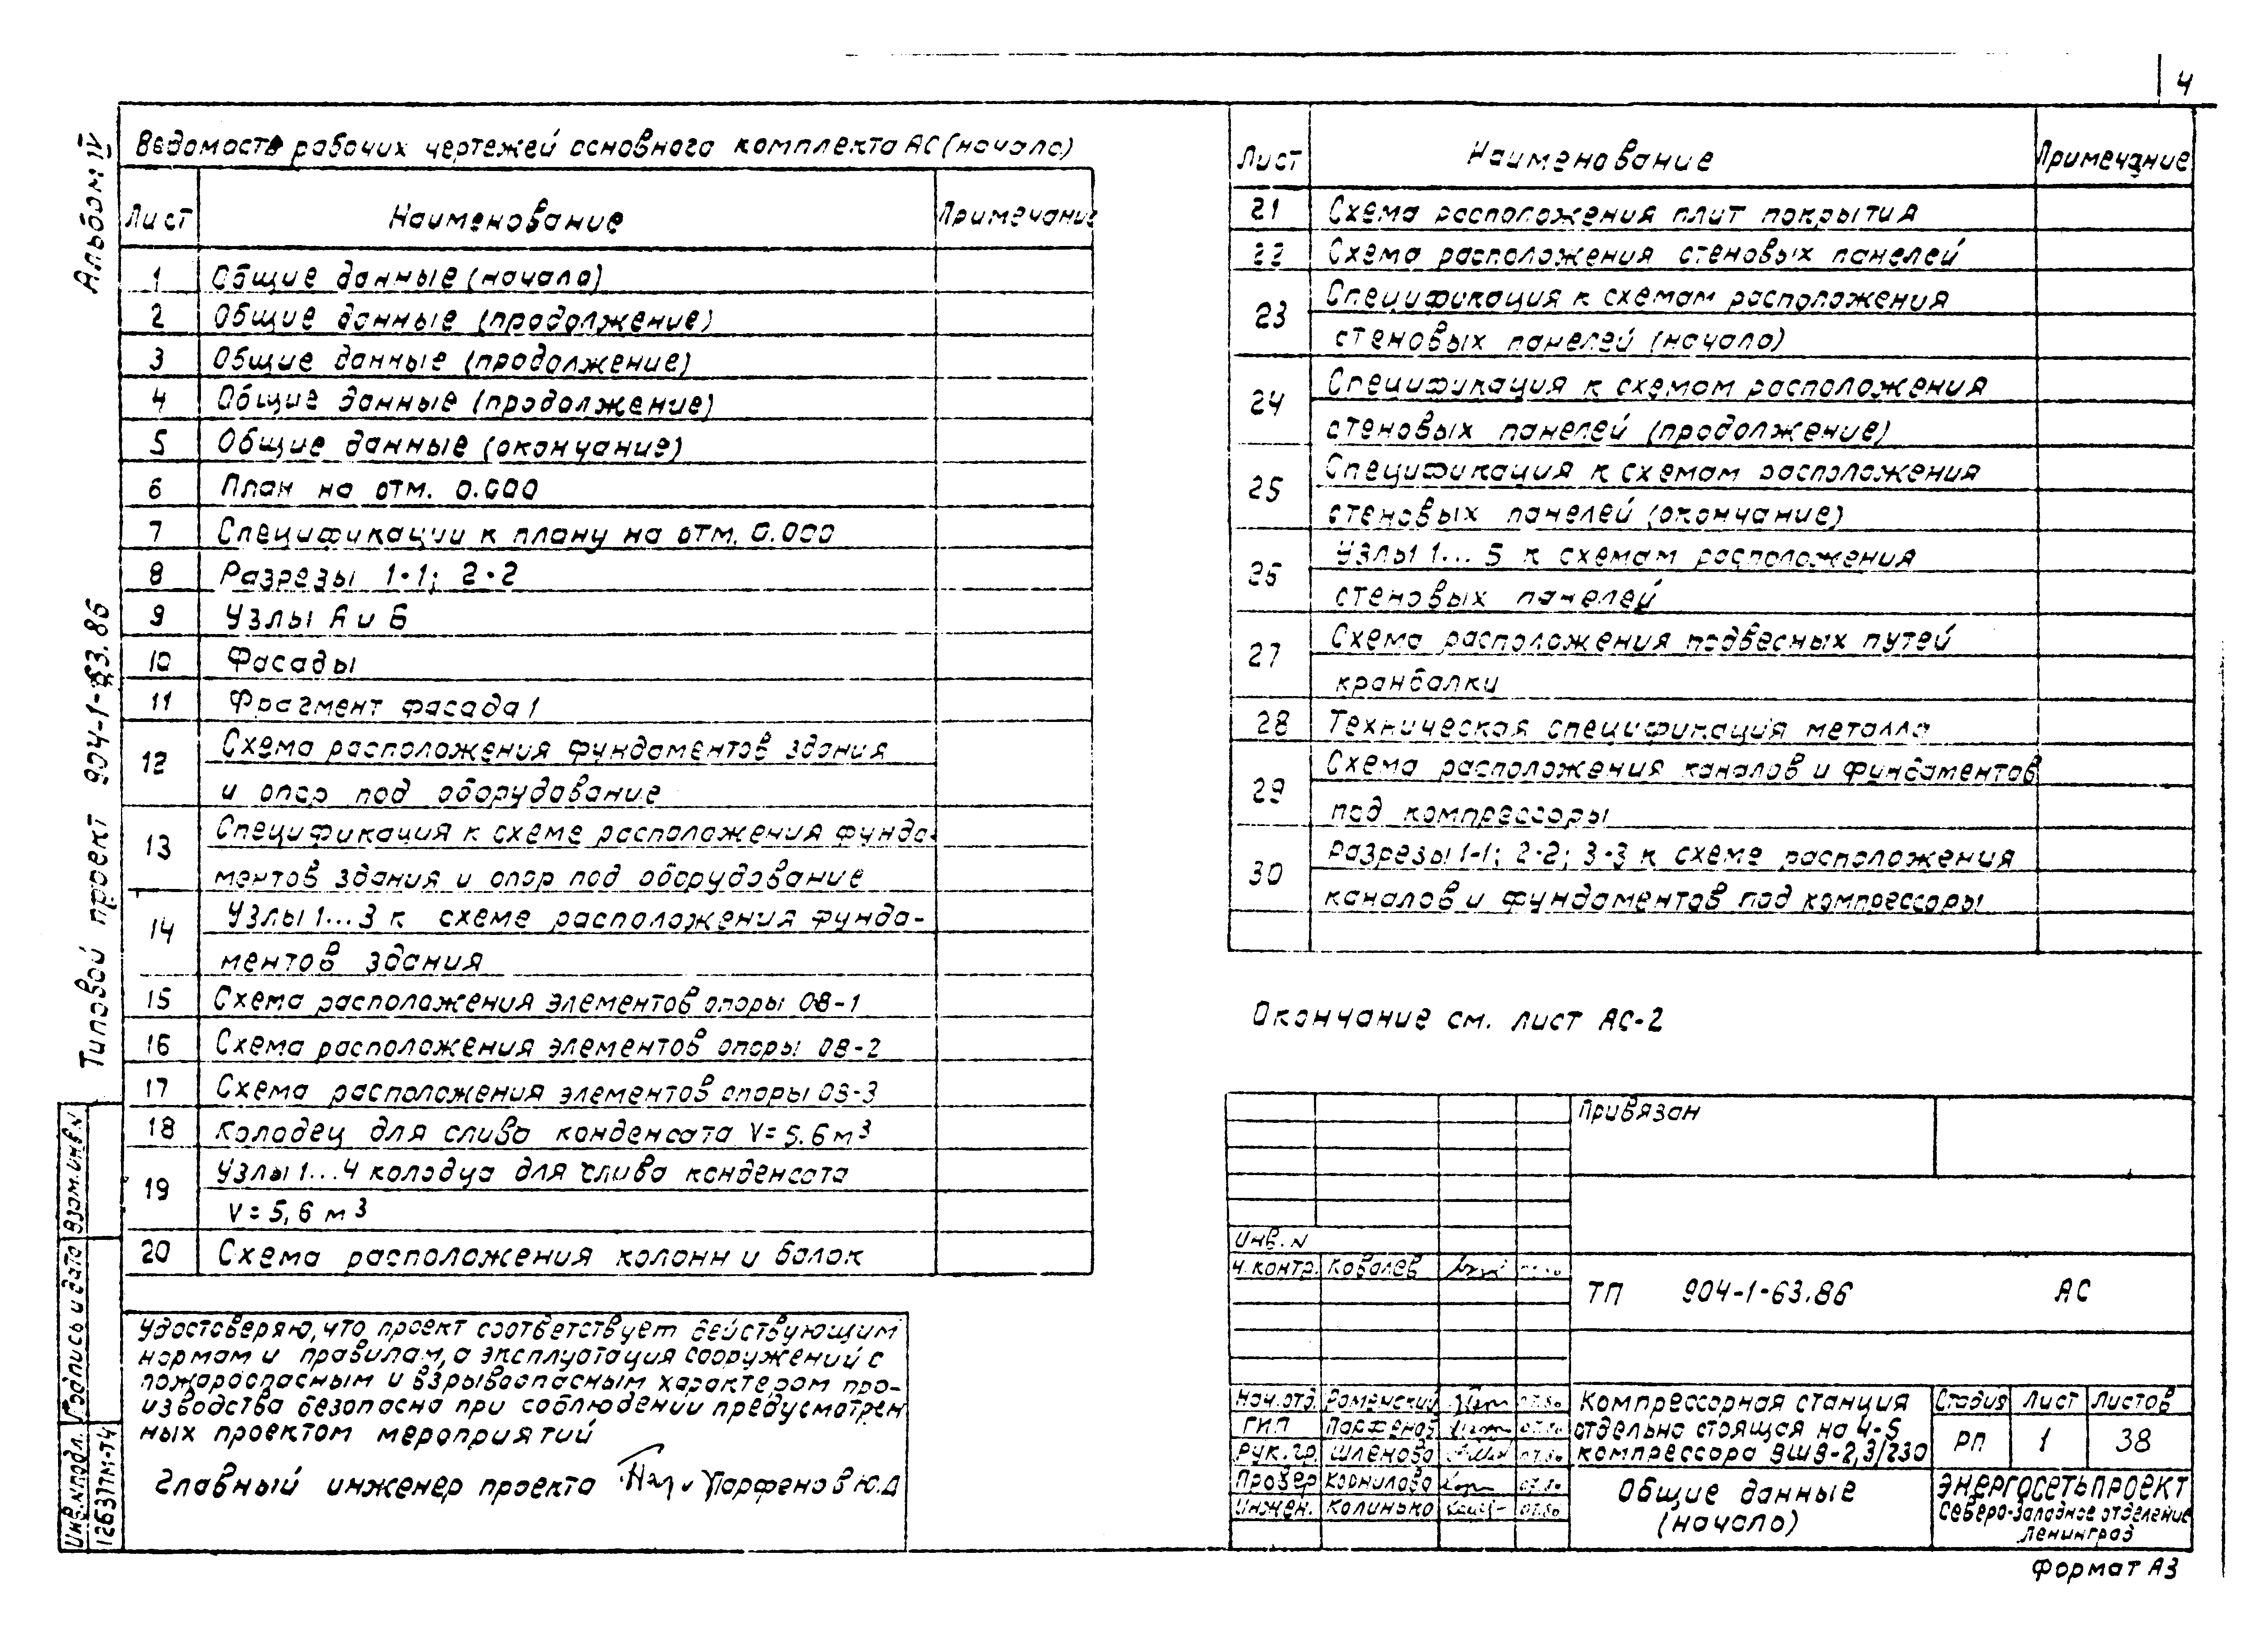 4
Альбом IV
Типовой проект 904-1-63.86
Ведомость рабочих чертежей основного комплекта АС (начало)
Лист Наименование Примечание
1 Общие данные (начало)
2 Общие данные (продолжение)
3 Общие данные (продолжение)
4 Общие данные (продолжение)
5 Общие данные (окончание)
6 План на отм. 0.000
7 Спецификации к плану на отм. 0.000
8 Разрезы 1-1; 2-2
9 Узлы А и Б
10 Фасады
11 Фрагмент фасада 1
12 Схема расположения фундаментов здания
и опор под оборудование
13 Спецификация к схеме расположения фунда-
ментов здания и опор под оборудование
14 Узлы 1...3 к схеме расположения фунда-
ментов здания
15 Схема расположения элементов опоры ОВ-1
16 Схема расположения элементов опоры ОВ-2
17 Схема расположения элементов опоры ОВ-3
18 Колодец для слива конденсата V=5.6 м³
19 Узлы 1...4 колодца для слива конденсата
V=5,6 м³
20 Схема расположения колонн и балок
Удостоверяю, что проект соответствует действующим
нормам и правилам, а эксплуатация сооружений с
пожароопасным и взрывоопасным характером про-
изводства безопасна при соблюдении предусмотрен
ных проектом мероприятий
Главный инженер проекта Парфенов Ю.Д
Взам. инв. №
Подпись и дата
Инв. № подл.
12637тм-т4
Лист Наименование Примечание
21 Схема расположения плит покрытия
22 Схема расположения стеновых панелей
23 Спецификация к схемам расположения
стеновых панелей (начало)
24 Спецификация к схемам расположения
стеновых панелей (продолжение)
25 Спецификация к схемам расположения
стеновых панелей (окончание)
26 Узлы 1...5 к схемам расположения
стеновых панелей
27 Схема расположения подвесных путей
кранбалки
28 Техническая спецификация металла
29 Схема расположения каналов и фундаментов
под компрессоры
30 Разрезы 1-1; 2-2; 3-3 к схеме расположения
каналов и фундаментов под компрессоры
Окончание см. лист АС-2
Привязан
Инв. №
Н. контр. Ковалев
ТП 904-1-63.86 АС
Нач. отд. Роменский 07.86
ГИП Парфенов 07.86
Рук. гр. Шленова 07.86
Провер Корнилова 07.86
Инжен. Калинько 07.86
Компрессорная станция
отдельно стоящая на 4-5
компрессора ВШВ-2,3/230
Стадия Лист Листов
РП 1 38
Общие данные
(начало)
ЭНЕРГОСЕТЬПРОЕКТ
Северо-Западное отделение
Ленинград
Формат А3